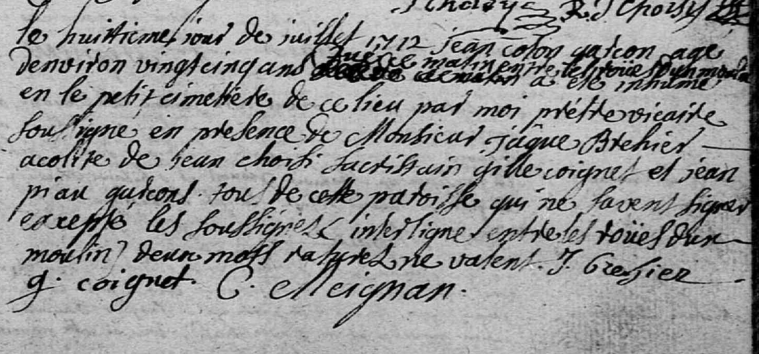 J Choisy R. J Choisy
le huitieme jour de juillet 1712 jean colon garcon age
denviron vingt cinq ans tué ce matin entre les roües dun moulin
a ete inhume
en le petit cimetiere de ce lieu par moi prêtre vicaire
soussigne en presence de Monsieur jaque Brehier
acolite de jean choisi sacristain gille coignet et jean
piau garcons tous de cette paroisse qui ne savent signer
excepté les soussignes interligne entre les roües dun
moulin deux mots raturez ne valent. J. Brehier
g. coignet. C. Meignan.